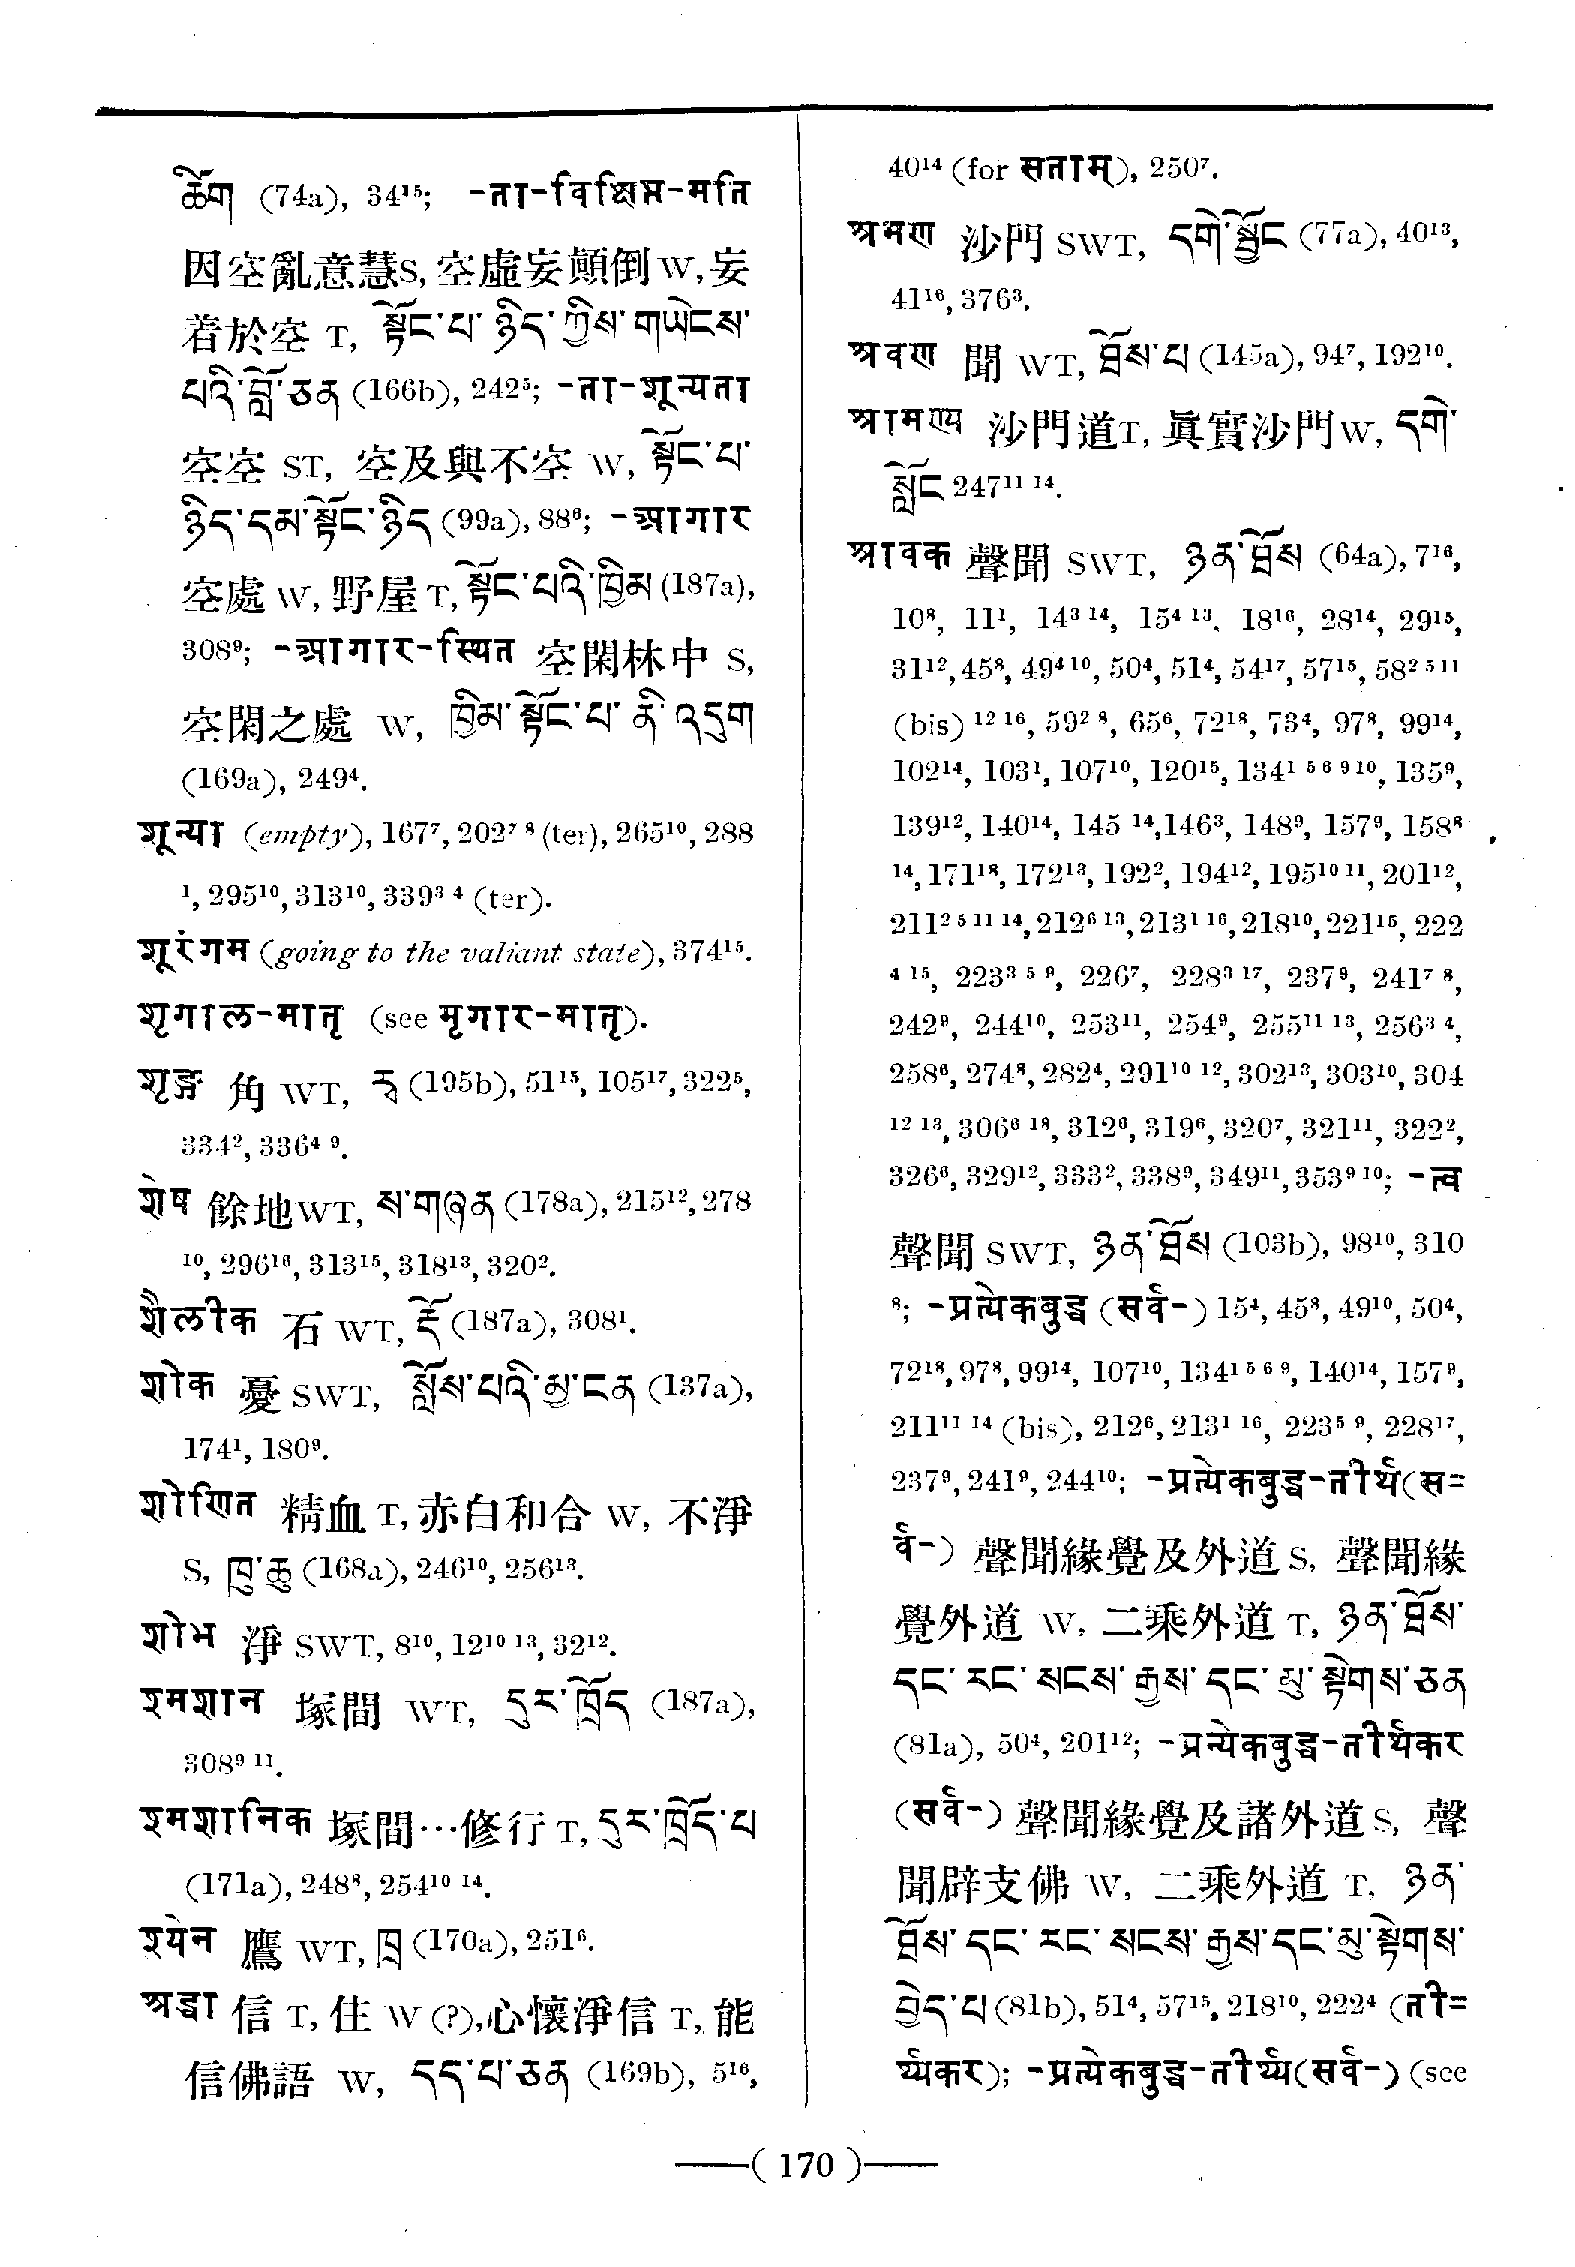 ཚིག (74a), 34¹⁵; -ता-विक्षिप्त-मति
因空亂意慧S, 空虛妄顛倒W, 妄
着於空 T, སྟོང་པ་ ཉིད་ ཀྱིས་ གཡེངས་
པའི་བློ་ཅན (166b), 242⁵; -ता-शून्यता
空空 ST, 空及與不空 W, སྟོང་པ་
ཉིད་དམ་སྟོང་ཉིད (99a), 88⁶; -आगार
空處 W, 野屋 T, སྟོང་པའི་ཁྱིམ (187a),
308⁹; -आगार-स्थित 空閑林中 S,
空閑之處 W, ཁྱིམ་སྟོང་པ་ ནི་འདུག
(169a), 249⁴.
शून्या (empty), 167⁷, 202⁷ ⁸ (ter), 265¹⁰, 288
¹, 295¹⁰, 313¹⁰, 339³ ⁴ (ter).
शूरंगम (going to the valiant state), 374¹⁵.
शृगाल-मातृ (see मृगार-मातृ).
शृङ्ग 角 WT, རྭ (195b), 51¹⁵, 105¹⁷, 322⁵,
334², 336⁴ ⁹.
शेष 餘地WT, ས་གཞན (178a), 215¹², 278
¹⁰, 296¹⁶, 313¹⁵, 318¹³, 320².
शैलीक 石 WT, རྡོ (187a), 308¹.
शोक 憂 SWT, སློས་པའི་མྱ་ངན (137a),
174¹, 180⁹.
शोणित 精血 T, 赤白和合 W, 不淨
S, ཁུ་ཆུ (168a), 246¹⁰, 256¹³.
शोभ 淨 SWT, 8¹⁰, 12¹⁰ ¹³, 32¹².
श्मशान 塚間 WT, དུར་ཁྲོད (187a),
308⁹ ¹¹.
श्मशानिक 塚間…修行 T, དུར་ཁྲོད་པ
(171a), 248⁸, 254¹⁰ ¹⁴.
श्येन 鷹 WT, ཁྲ (170a), 251⁶.
श्रद्धा 信 T, 住 W (?), 心懷淨信 T, 能
信佛語 W, དད་པ་ཅན (169b), 5¹⁶,
40¹⁴ (for सताम्), 250⁷.
श्रमण 沙門 SWT, དགེ་སྦྱོང (77a), 40¹³,
41¹⁶, 376³.
श्रवण 聞 WT, ཐོས་པ (145a), 94⁷, 192¹⁰.
श्रामण्य 沙門道T, 眞實沙門W, དགེ་
སློང 247¹¹ ¹⁴.
श्रावक 聲聞 SWT, ཉན་ཐོས (64a), 7¹⁶,
10⁸, 11¹, 14³ ¹⁴, 15⁴ ¹³, 18¹⁶, 28¹⁴, 29¹⁵,
31¹², 45⁸, 49⁴ ¹⁰, 50⁴, 51⁴, 54¹⁷, 57¹⁵, 58² ⁵ ¹¹
(bis) ¹² ¹⁶, 59² ⁸, 65⁶, 72¹⁸, 73⁴, 97⁸, 99¹⁴,
102¹⁴, 103¹, 107¹⁰, 120¹⁵, 134¹ ⁵ ⁶ ⁹ ¹⁰, 135⁹,
139¹², 140¹⁴, 145 ¹⁴, 146³, 148⁹, 157⁹, 158⁸
¹⁴, 171¹⁸, 172¹³, 192², 194¹², 195¹⁰ ¹¹, 201¹²,
211² ⁵ ¹¹ ¹⁴, 212⁶ ¹³, 213¹ ¹⁶, 218¹⁰, 221¹⁵, 222
⁴ ¹⁵, 223³ ⁵ ⁹, 226⁷, 228³ ¹⁷, 237⁹, 241⁷ ⁸,
242⁸, 244¹⁰, 253¹¹, 254⁹, 255¹¹ ¹³, 256³ ⁴,
258⁶, 274⁸, 282⁴, 291¹⁰ ¹², 302¹³, 303¹⁰, 304
¹² ¹³, 306⁶ ¹⁸, 312⁶, 319⁶, 320⁷, 321¹¹, 322²,
326⁶, 329¹², 333², 338⁹, 349¹¹, 353⁹ ¹⁰; -त्व
聲聞 SWT, ཉན་ཐོས (103b), 98¹⁰, 310
⁸; -प्रत्येकबुद्ध (सर्व-) 15⁴, 45⁸, 49¹⁰, 50⁴,
72¹⁸, 97⁸, 99¹⁴, 107¹⁰, 134¹ ⁵ ⁶ ⁹, 140¹⁴, 157⁹,
211¹¹ ¹⁴ (bis), 212⁶, 213¹ ¹⁶, 223⁵ ⁹, 228¹⁷,
237⁹, 241⁹, 244¹⁰; -प्रत्येकबुद्ध-तीर्थ (स=
र्व-) 聲聞緣覺及外道 S, 聲聞緣
覺外道 W, 二乘外道 T, ཉན་ཐོས་
དང་ རང་ སངས་ རྒྱས་ དང་ མུ་ སྟེགས་ཅན
(81a), 50⁴, 201¹²; -प्रत्येकबुद्ध-तीर्थकर
(सर्व-) 聲聞緣覺及諸外道 S, 聲
聞辟支佛 W, 二乘外道 T, ཉན་
ཐོས་ དང་ རང་ སངས་ རྒྱས་དང་མུ་སྟེགས་
བྱེད་པ (81b), 51⁴, 57¹⁵, 218¹⁰, 222⁴ (ती=
र्थ्यकर); -प्रत्येकबुद्ध-तीर्थ्य(सर्व-) (see
—( 170 )—